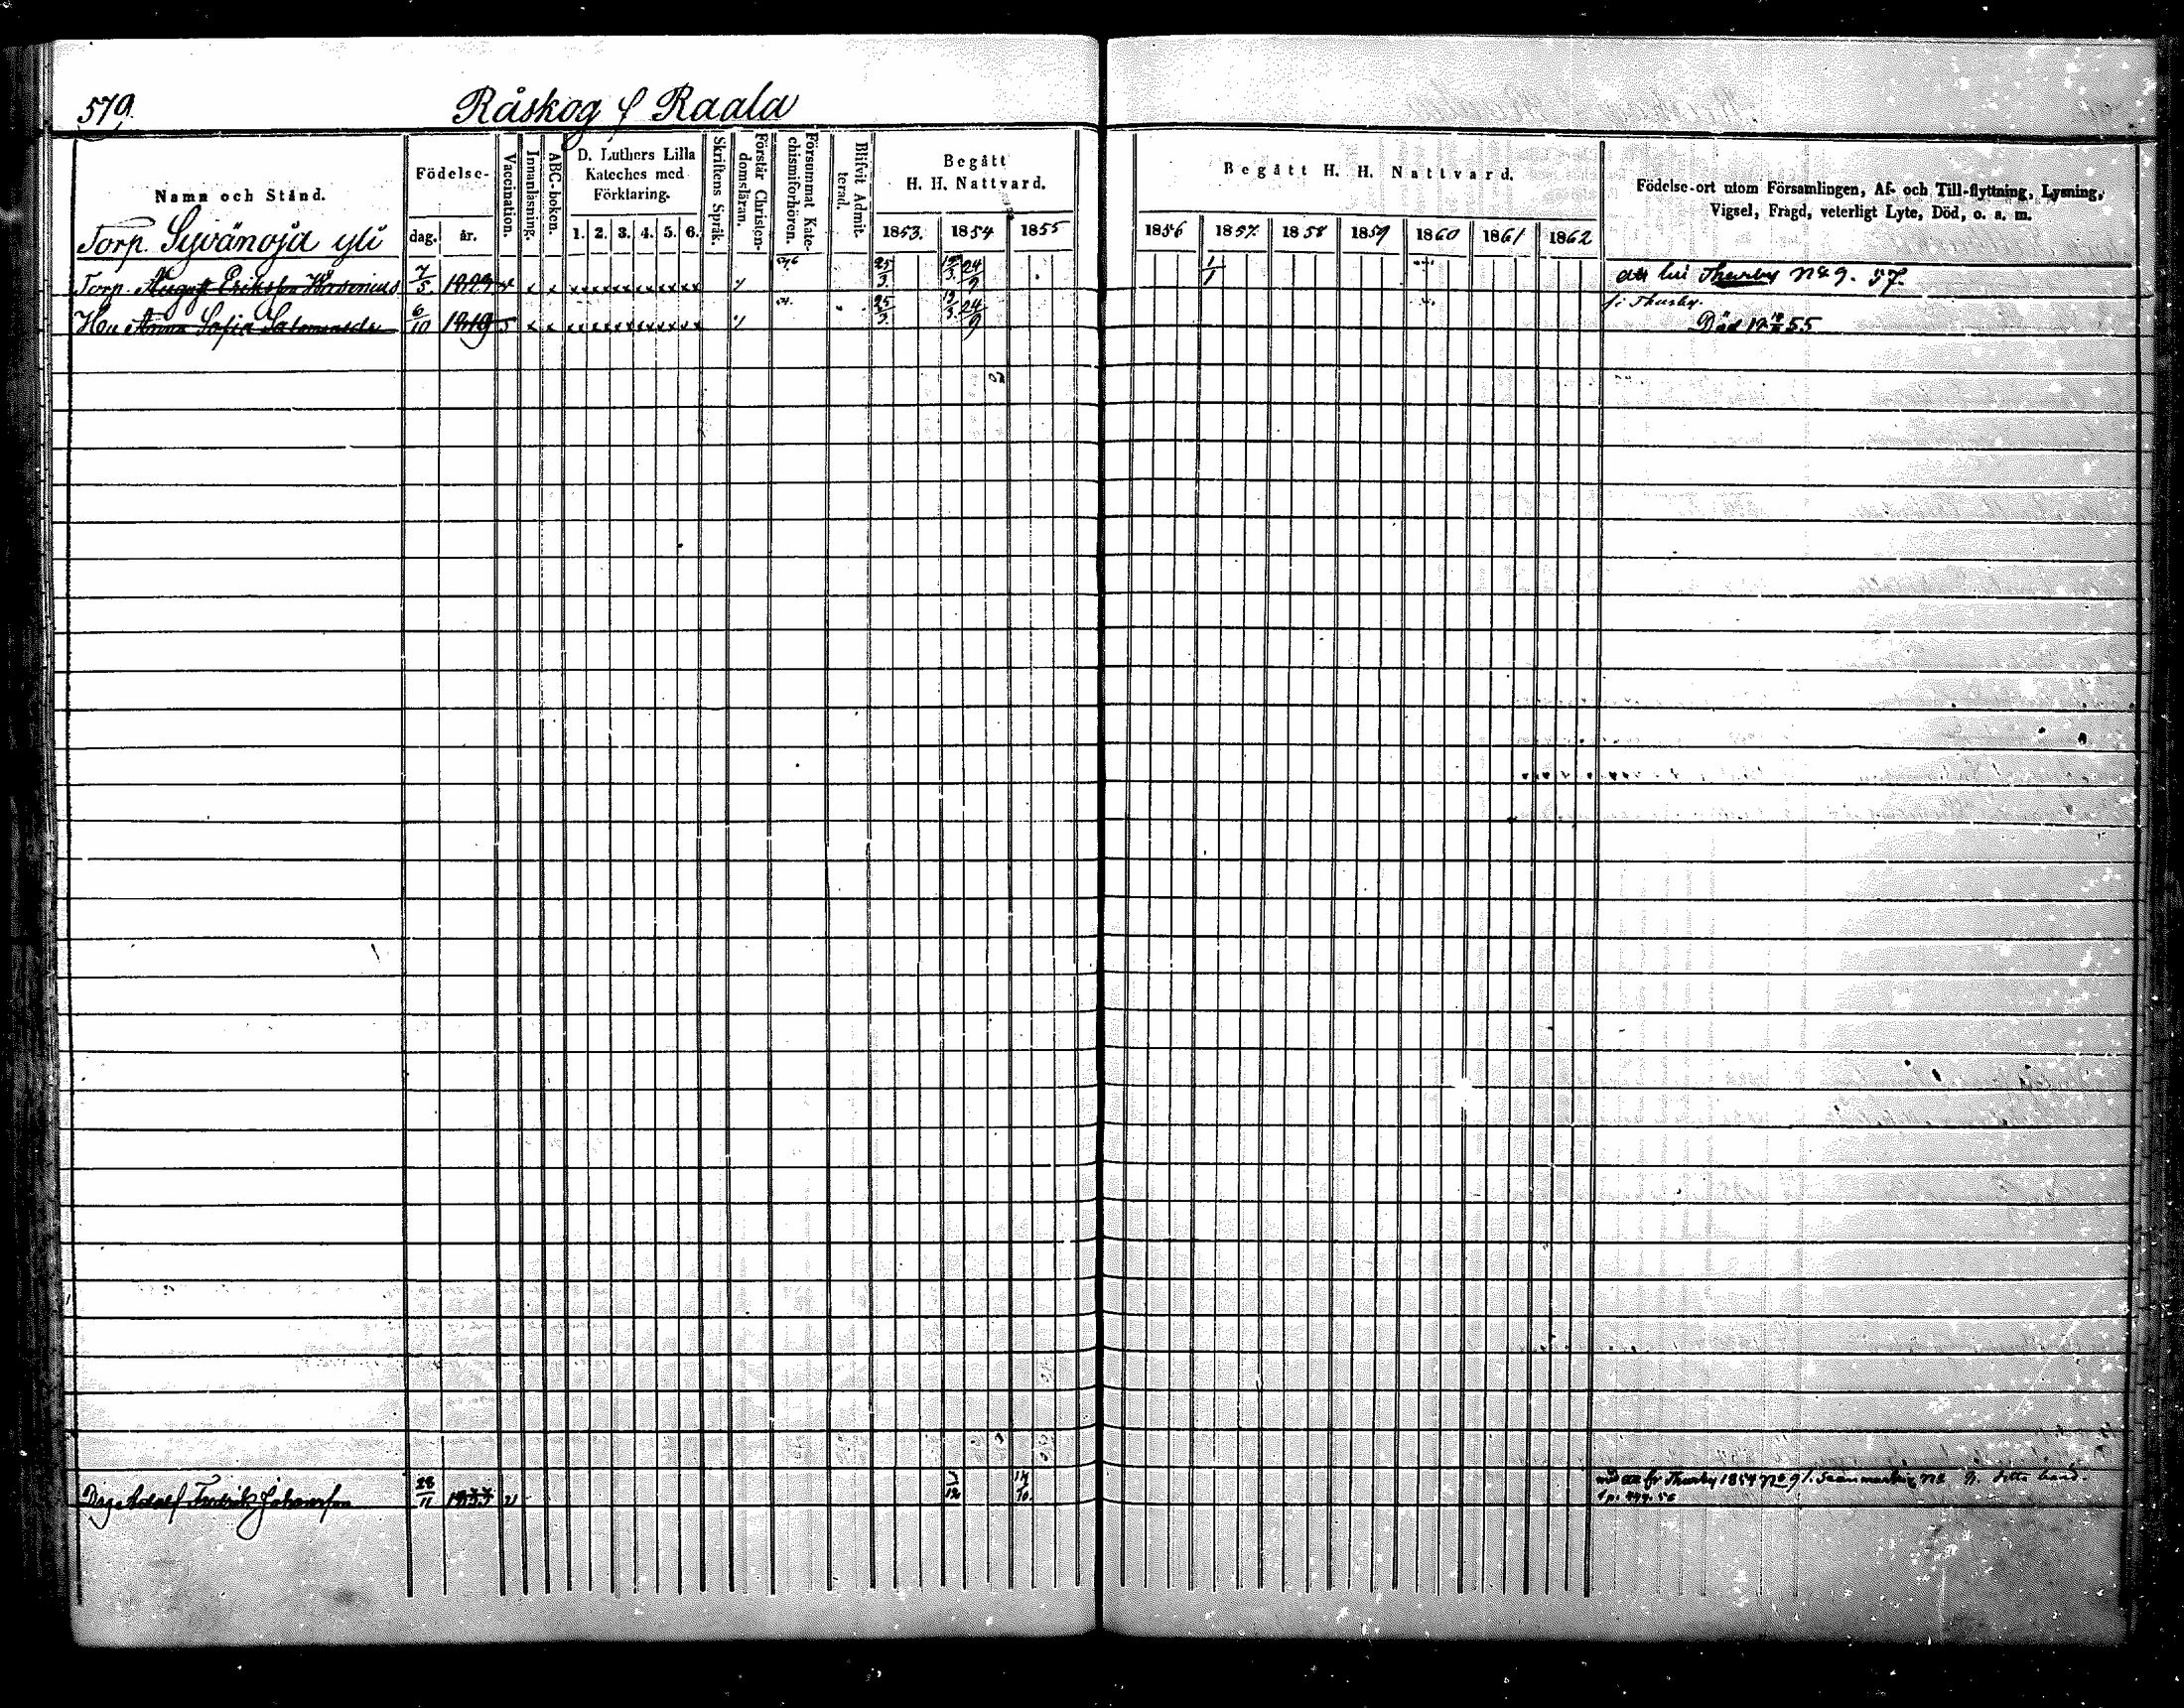 579.
Råskog f Raala
Namn och Stånd.
Födelse-
dag. år.
Vaccination.
Innanläsning.
ABC-boken.
D. Luthers Lilla
Kateches med
Förklaring.
1. 2. 3. 4. 5. 6.
Skriftens Språk.
Förstår Christen-
domsläran.
Försommat Kate-
chismiförhören.
Blifvit Admit-
terad.
Begått
H. H. Nattvard.
1853. 1854 1855
Begått H. H. Nattvard.
1856 1857 1858 1859 1860 1861 1862
Födelse-ort utom Församlingen, Af- och Till-flyttning, Lysning,
Vigsel, Frägd, veterligt Lyte, Död, o. a. m.
Torp. Syvänojä yli
Torp. August Eriksson 7/5 x x x x x x x x 25/3 24/9 1/1 Thusby No 9. 57.
f: Thusby.
Hu Anna Sofia 6/10 1819 x x x x x x x x 25/3 12/3 24/9 Död 55
Drg Adolf Fredrik Johansson 28/11 fr Thusby 1854 No 91.